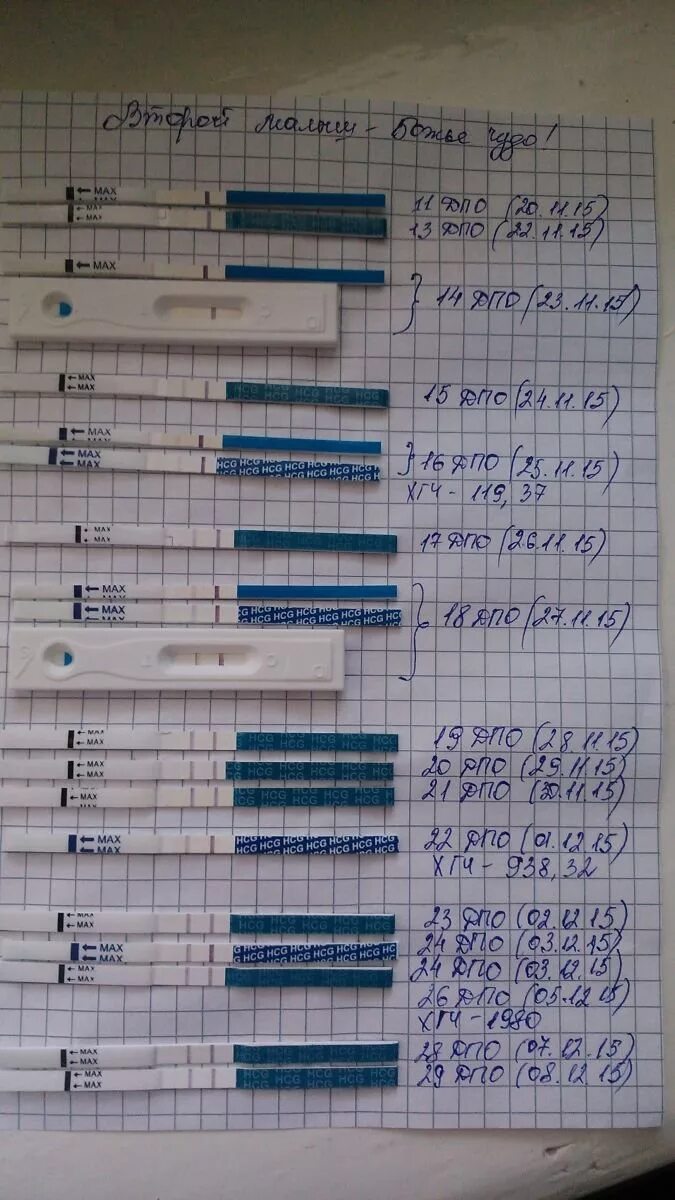 Второй малыш - Божье чудо!
← MAX
11 ДПО (20.11.15)
← MAX
13 ДПО (22.11.15)
← MAX
14 ДПО (23.11.15)
← MAX
← MAX
HCG HCG HCG HCG
15 ДПО (24.11.15)
← MAX
← MAX
← MAX
HCG HCG HCG HCG HCG HCG
HCG HCG HCG HCG HCG HCG
16 ДПО (25.11.15)
ХГЧ - 119,37
MAX
MAX
17 ДПО (26.11.15)
← MAX
← MAX
← MAX
HCG HCG HCG HCG HCG HCG
HCG HCG HCG HCG HCG HCG
18 ДПО (27.11.15)
← MAX
← MAX
HCG HCG HCG HCG
19 ДПО (28.11.15)
← MAX
← MAX
HCG HCG HCG HCG
20 ДПО (29.11.15)
← MAX
HCG HCG HCG HCG
21 ДПО (30.11.15)
← MAX
← MAX
HCG HCG HCG HCG HCG HCG
HCG HCG HCG HCG HCG HCG
22 ДПО (01.12.15)
ХГЧ - 938,32
← MAX
← MAX
HCG HCG HCG HCG
23 ДПО (02.12.15)
← MAX
← MAX
HCG HCG HCG HCG HCG HCG
HCG HCG HCG HCG HCG HCG
24 ДПО (03.12.15)
← MAX
← MAX
24 ДПО (03.12.15)
26 ДПО (05.12.15)
ХГЧ - 1980
← MAX
← MAX
HCG HCG HCG HCG
28 ДПО (07.12.15)
← MAX
← MAX
HCG HCG HCG HCG
29 ДПО (08.12.15)